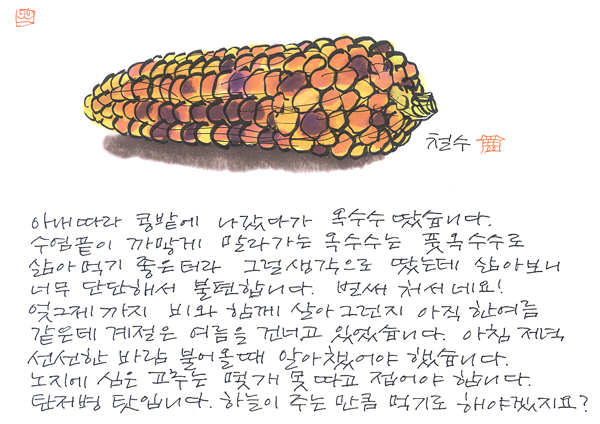 철수
아내따라 콩밭에 나갔다가 옥수수 땄습니다.
수염끝이 까맣게 말라가는 옥수수는 풋옥수수로
삶아먹기 좋은터라 그럴생각으로 땄는데 삶아보니
너무 단단해서 불편합니다. 벌써 처서네요!
엊그제까지 비와 함께 살아 그런지 아직 한여름
같은데 계절은 여름을 건너고 있었습니다. 아침 저녁,
선선한 바람 불어올때 알아챘어야 했습니다.
노지에 심은 고추는 몇개 못 따고 접어야 합니다.
탄저병 탓입니다. 하늘이 주는 만큼 먹기로 해야겠지요?